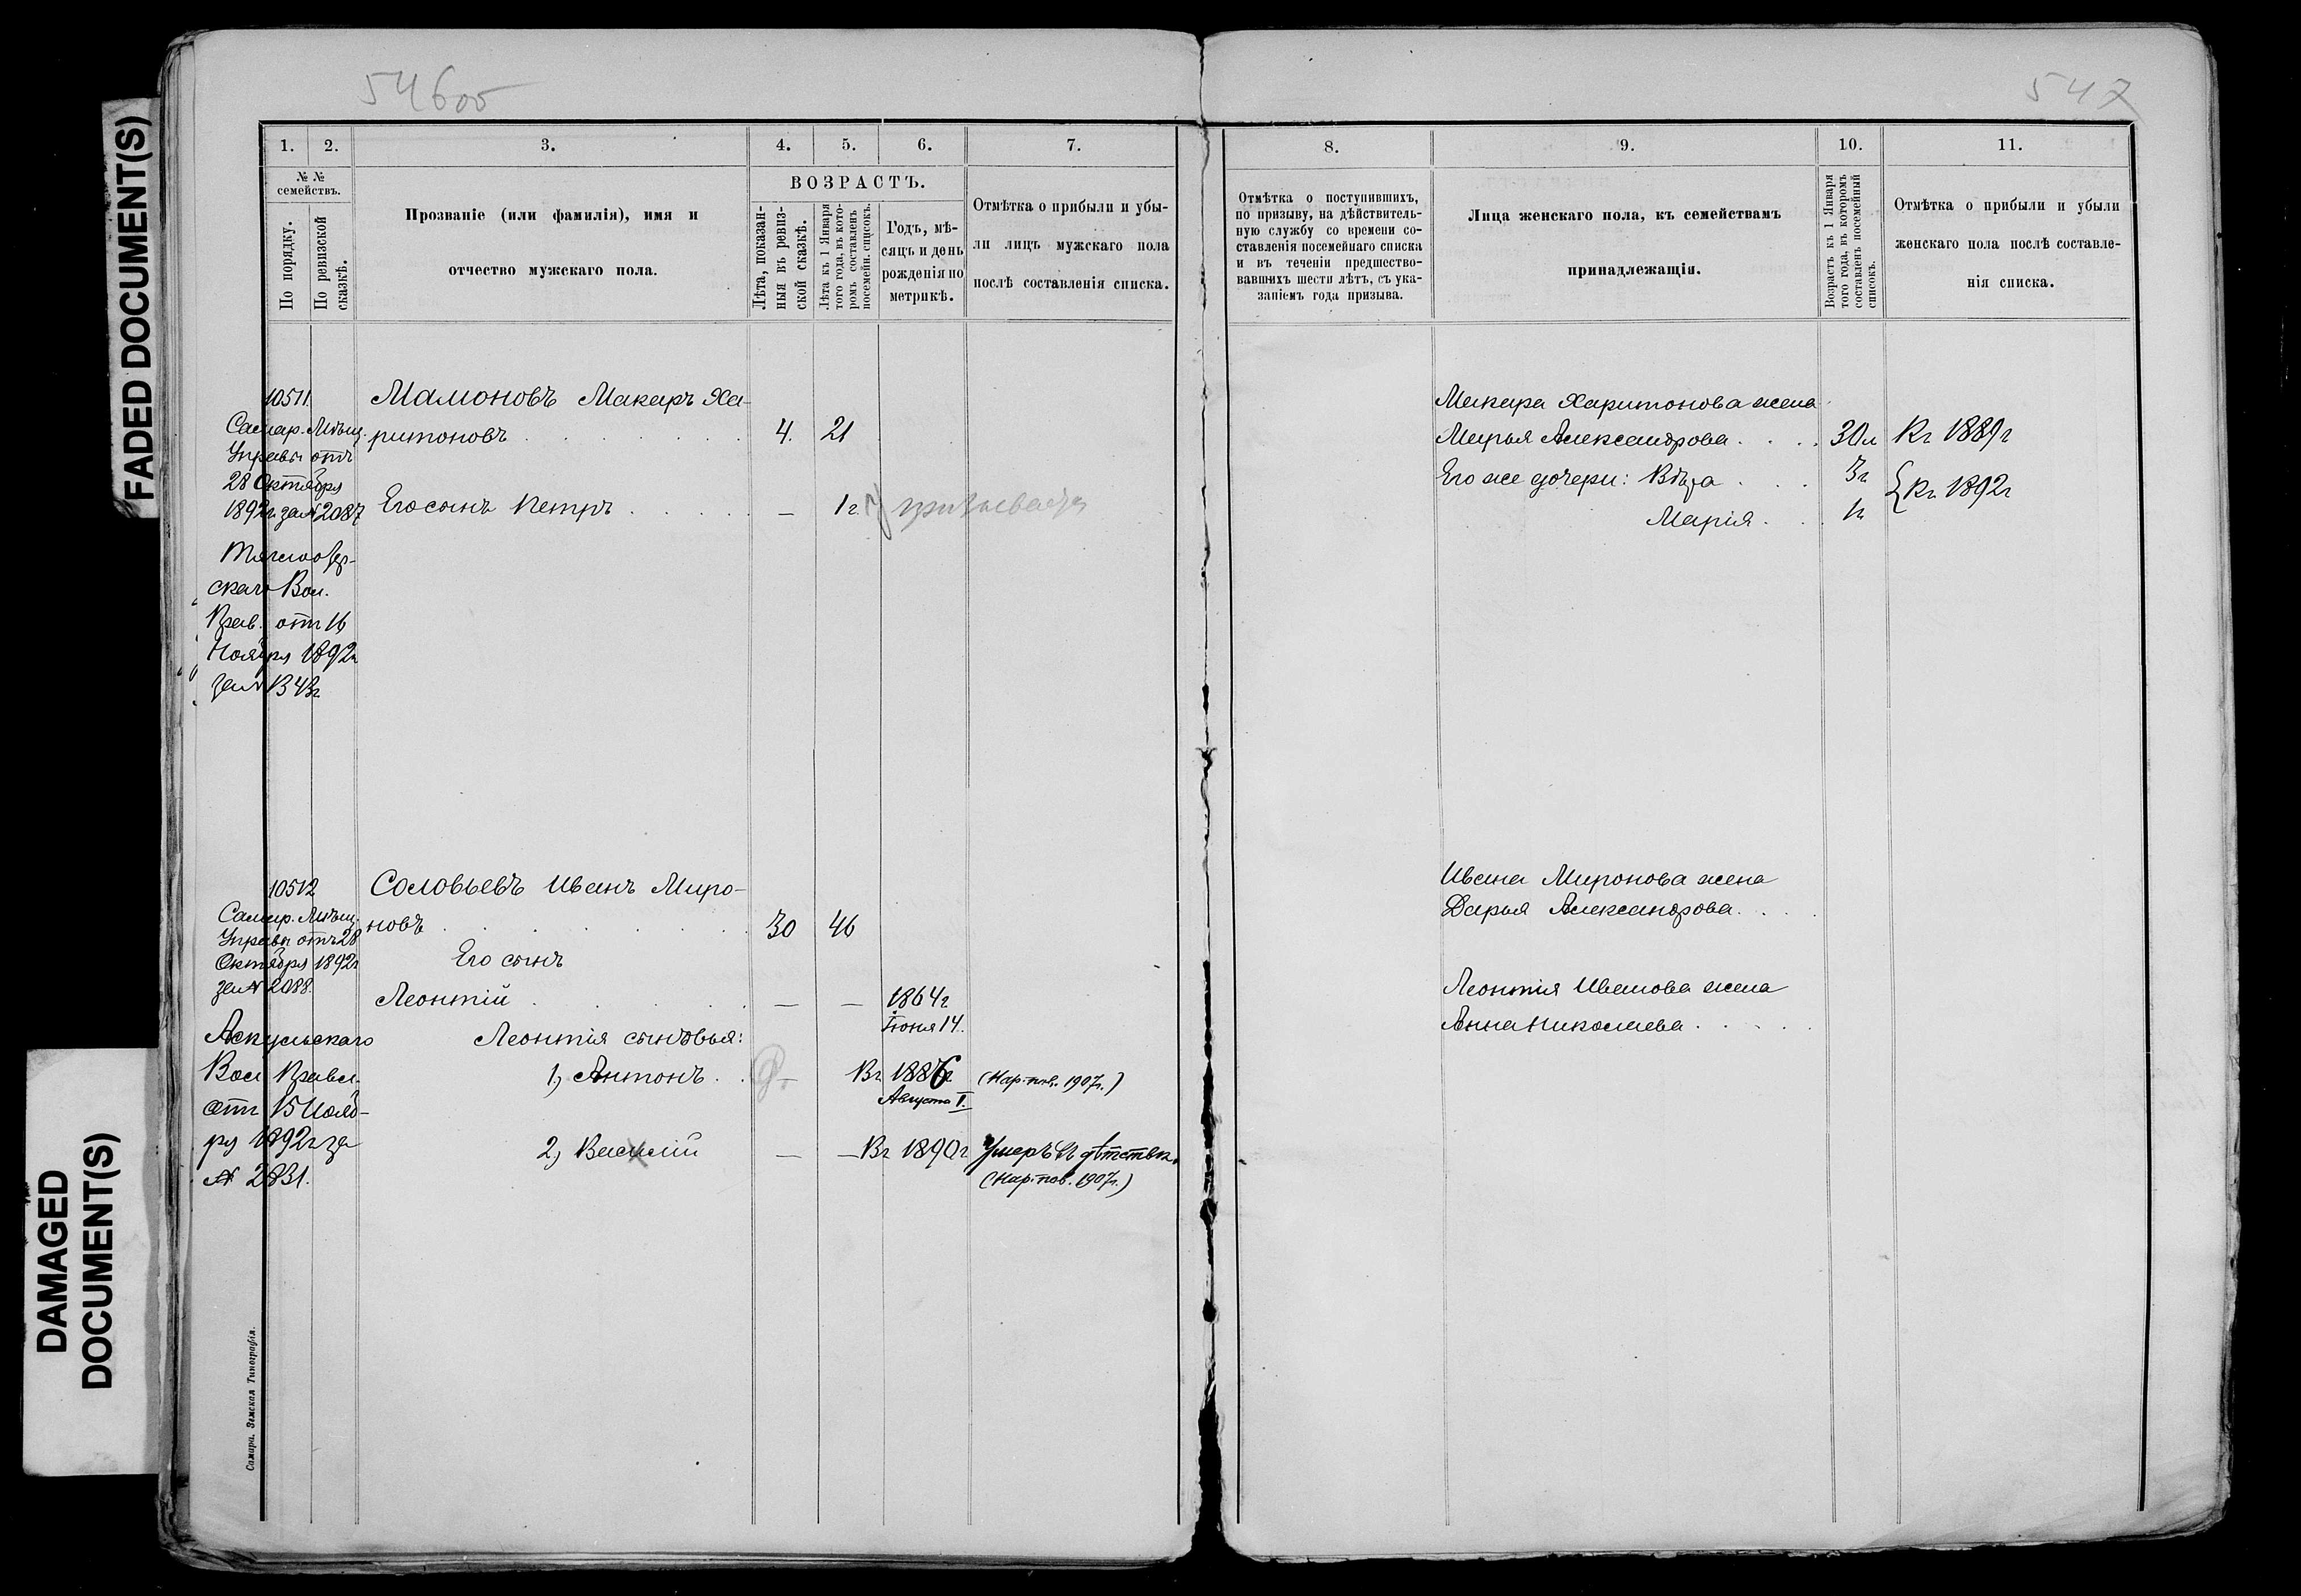 FADED DOCUMENT(S)
DAMAGED
DOCUMENT(S)
546об
547
1.
2.
3.
4.
5.
6.
7.
№ №
семействъ.
По порядку.
По ревизской
сказкѣ.
Прозваніе (или фамилія), имя и
отчество мужскаго пола.
ВОЗРАСТЪ.
Лѣта, показан-
ныя въ ревиз-
ской сказкѣ.
Лѣта къ 1 Января
того года, въ кото-
ромъ составленъ
посемейн. списокъ.
Годъ, мѣ-
сяцъ и день
рожденія по
метрикѣ.
Отмѣтка о прибыли и убы-
ли лицъ мужскаго пола
послѣ составленія списка.
10511.
Самар. Мѣщ.
Управы отъ
28 Октября
1892г. за № 2087
скаго Вол.
Прав. отъ 16
Ноября 1892г
за №
Мамоновъ Макаръ Ха-
ритоновъ . . . . . . . 4. 21
Его сынъ Петръ . . . . . — 1 г.
10512
Самар. Мѣщ.
Управы отъ 28
Октября 1892г
за № 2088.
Аскульскаго
Вол. Правл.
отъ 15 Нояб-
ря 1892г за
№ 2831.
Соловьевъ Иванъ Миро-
новъ . . . . . . . 30 46
Его сынъ
Леонтій . . . . — — 1864г
Іюня 14.
Леонтія сыновья:
1, Антонъ . . Въ 1886г (Нар. пов. 1907г.)
Августа 1.
2, Василій — — Въ 1890г Умеръ въ дѣтствѣ.
(Нар. пов. 1907г.)
Самара. Земская Типографія.
8.
9.
10.
11.
Отмѣтка о поступившихъ,
по призыву, на дѣйствитель-
ную службу со времени со-
ставленія посемейнаго списка
и въ теченіи предшество-
вавшихъ шести лѣтъ, съ ука-
заніемъ года призыва.
Лица женскаго пола, къ семействамъ
принадлежащія.
Возрастъ къ 1 Января
того года, въ которомъ
составленъ посемейный
списокъ.
Отмѣтка о прибыли и убыли
женскаго пола послѣ составле-
нія списка.
Макара Харитонова жена
Марья Александрова . . . . 30л Къ 1889г
Его же дочери: Вѣра . . . 3г
Къ 1892г
Марія . . 1г
Ивана Миронова жена
Дарья Александрова . . .
Леонтія Иванова жена
Анна Николаева . . . . .